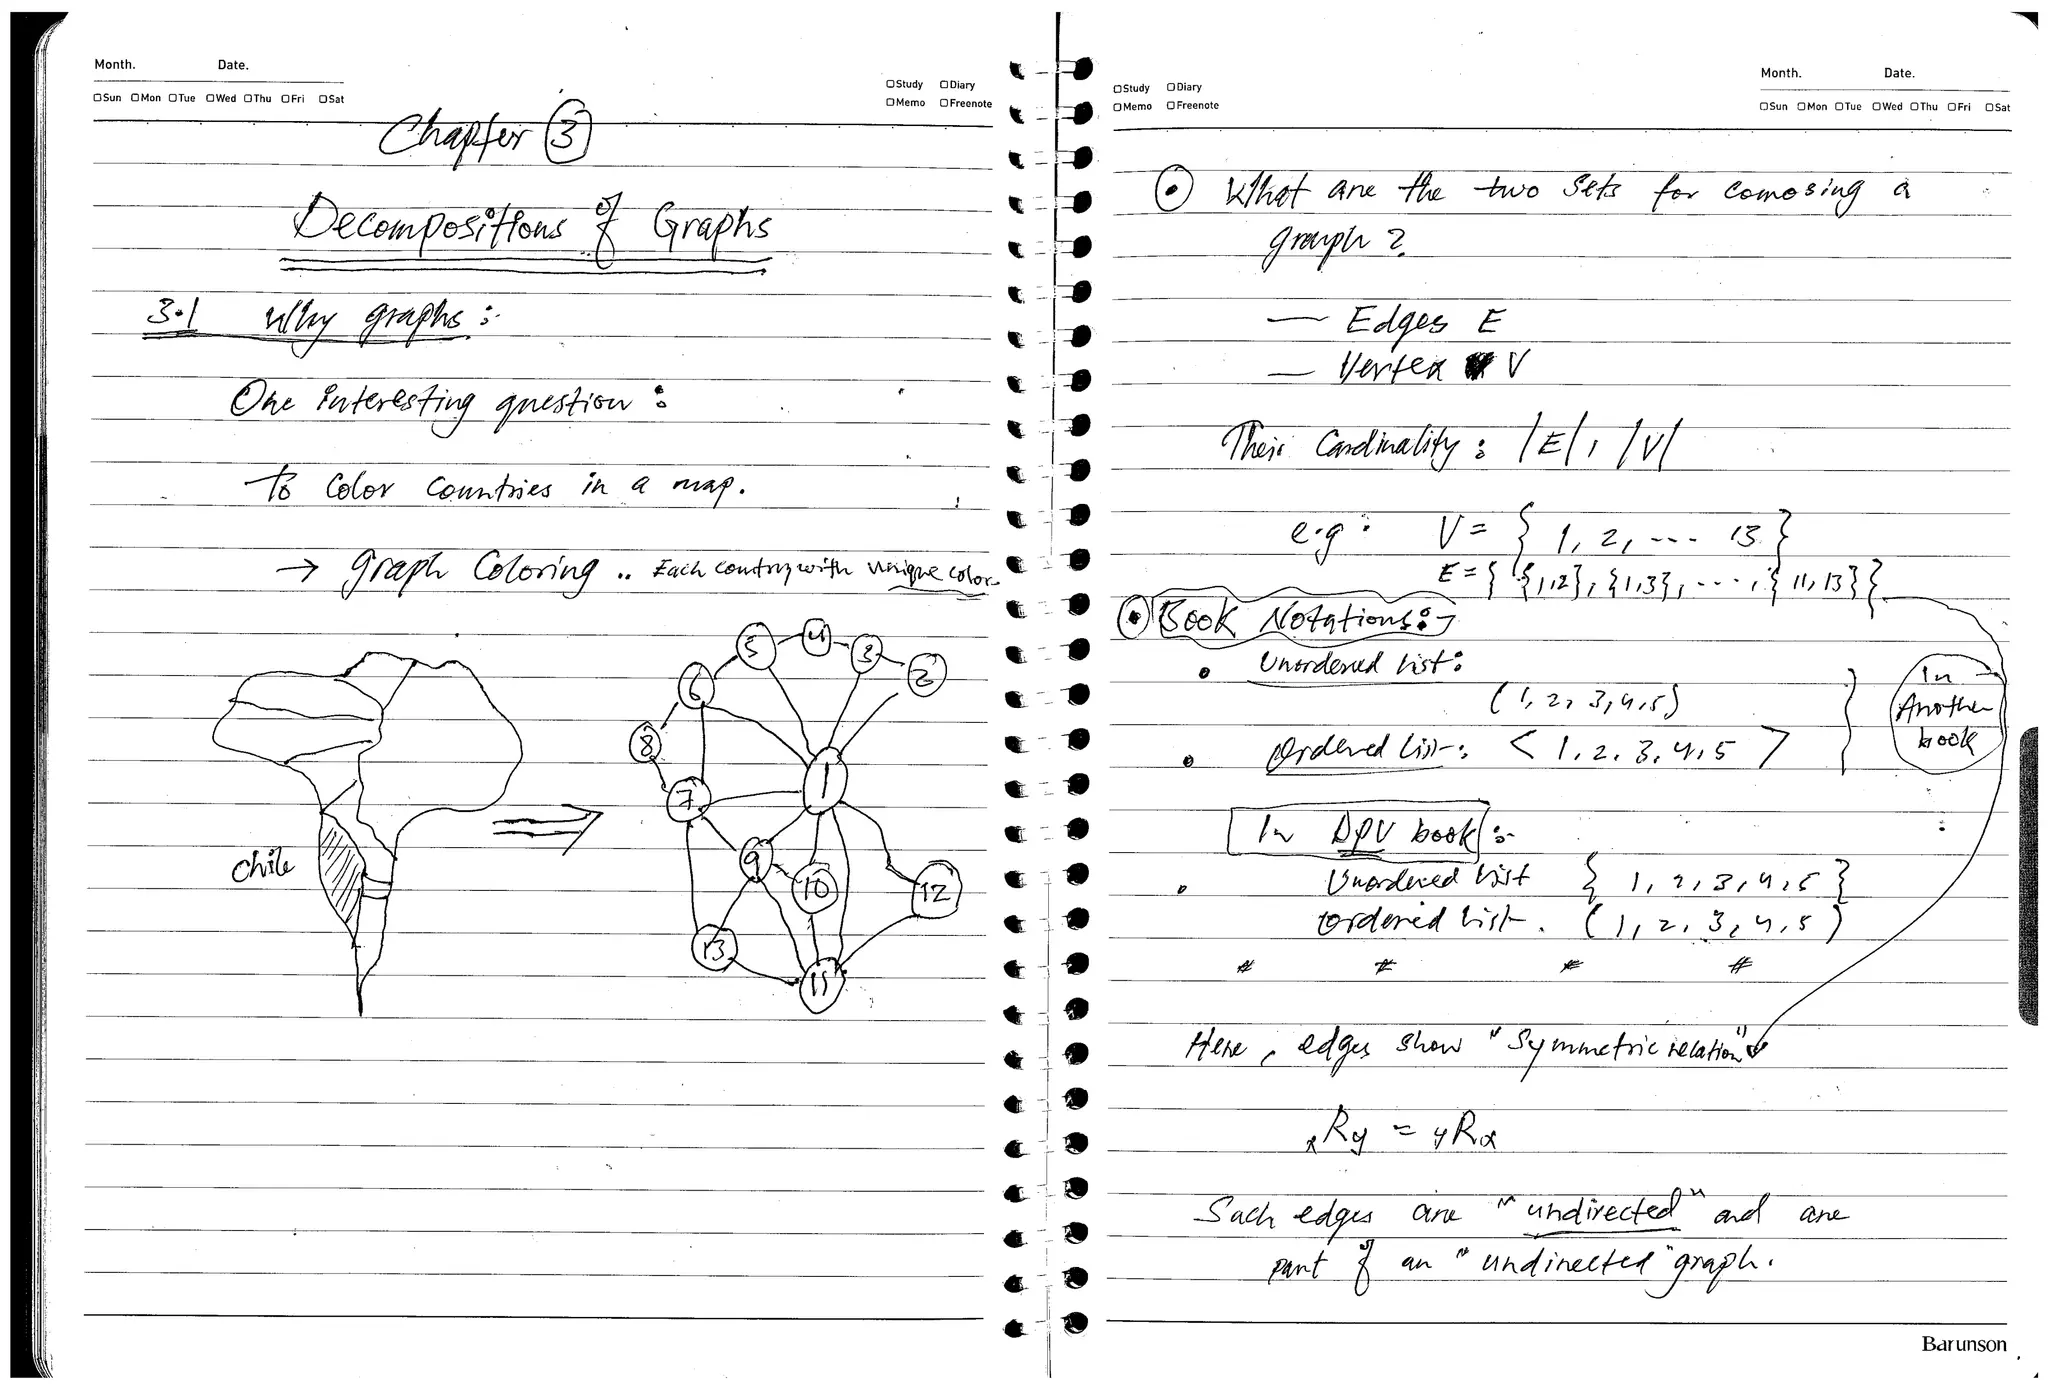 Month. Date.
Sun Mon Tue Wed Thu Fri Sat
Study Diary
Memo Freenote
Chapter 3
Decompositions of Graphs
3.1 Why graphs:
One interesting question:
To color countries in a map.
→ Graph Coloring .. Each country with unique color
5 4 3 2
6
8
1
7
Chile
9
10
12
13
11
Study Diary
Memo Freenote
Month. Date.
Sun Mon Tue Wed Thu Fri Sat
What are the two sets for comosing a
graph?
— Edges E
— Vertex V
Their Cardinality: |E|, |V|
e.g: V = { 1, 2, ... 13 }
E = { {1,2}, {1,3}, ...., { 11, 13} }
Book Notations:-
Unordered list:
(1, 2, 3, 4, 5)
Ordered list: < 1, 2, 3, 4, 5 >
In
Another
book
In DPV book:-
Unordered list { 1, 2, 3, 4, 5 }
Ordered list. ( 1, 2, 3, 4, 5 )
# # # #
Here, edges show "Symmetric relation"
xRy = yRx
Such edges are "undirected" and are
part of an "undirected" graph.
Barunson